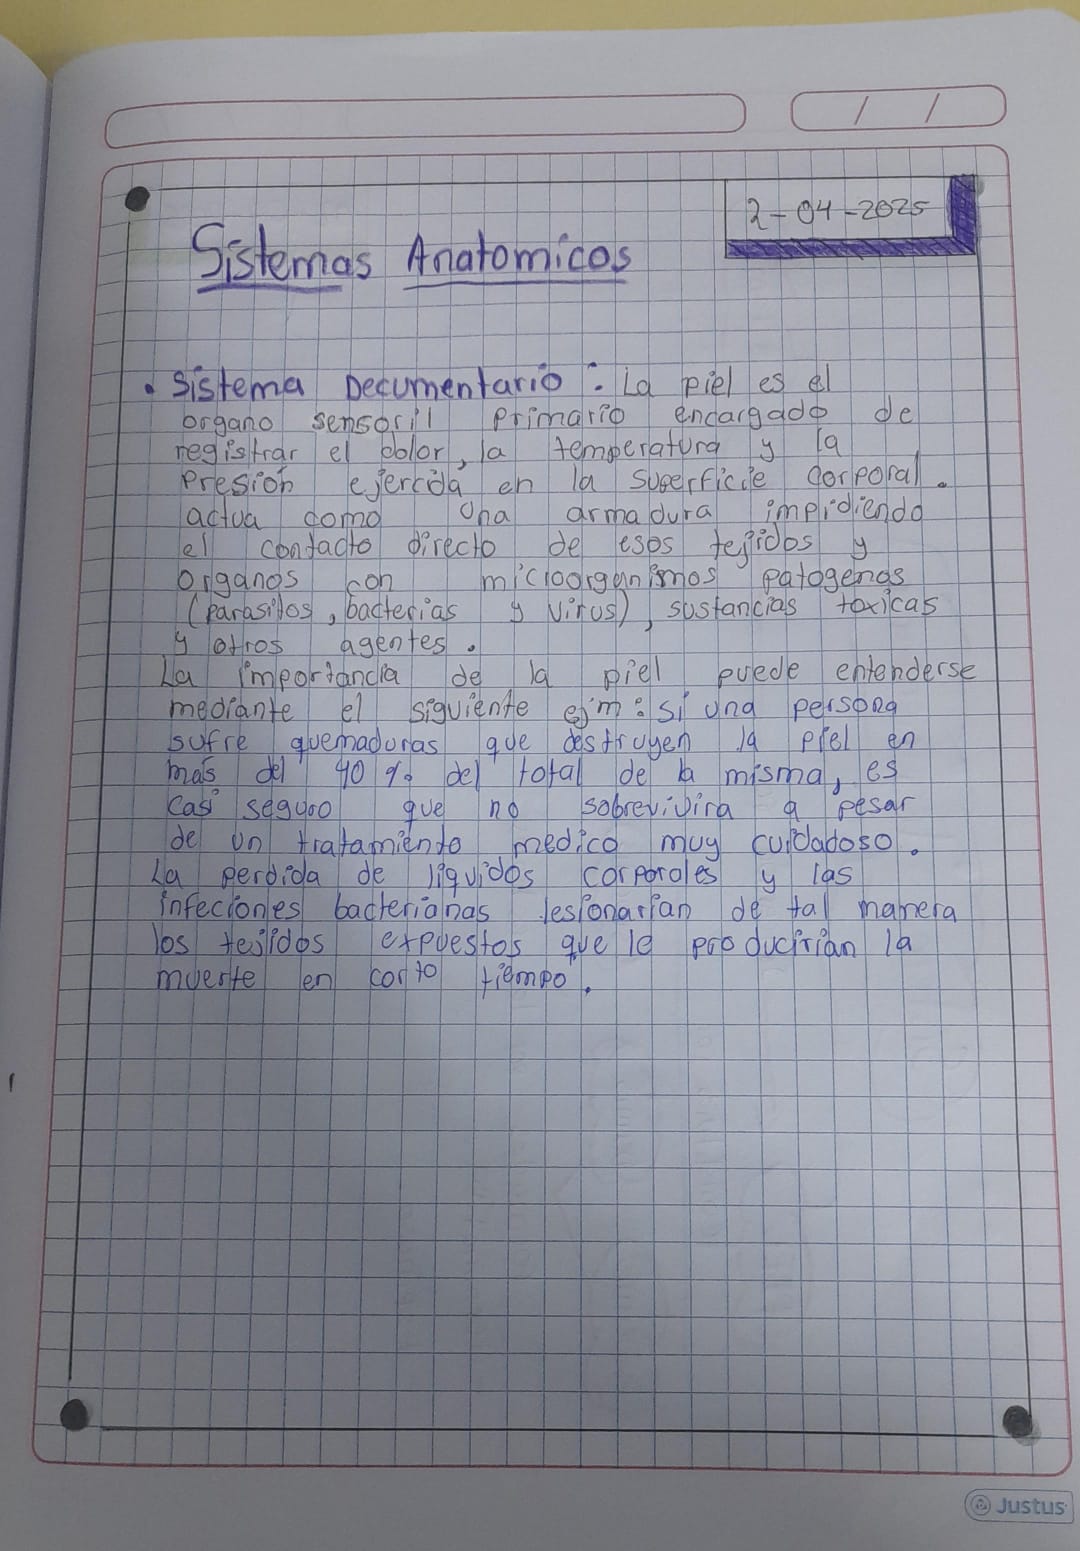 2-04-2025
Sistemas Anatomicos
• Sistema Decumentario : La piel es el
organo sensoril primario encargado de
registrar el dolor, la temperatura y la
Presión ejercida en la superficie corporal.
actua como una armadura impidiendo
el contacto directo de esos tejidos y
organos con microorganismos patogenos
(parasitos, bacterias y virus), sustancias toxicas
y otros agentes.
La importancia de la piel puede entenderse
mediante el siguiente ejm: si una persona
sufre quemaduras que destruyen la piel en
mas del 40 % del total de la misma, es
casi seguro que no sobrevivira a pesar
de un tratamiento medico muy cuidadoso.
La perdida de liquidos corporoles y las
infeciones bacterianas lesionarian de tal manera
los tejidos expuestos que le producirian la
muerte en corto tiempo.
Justus